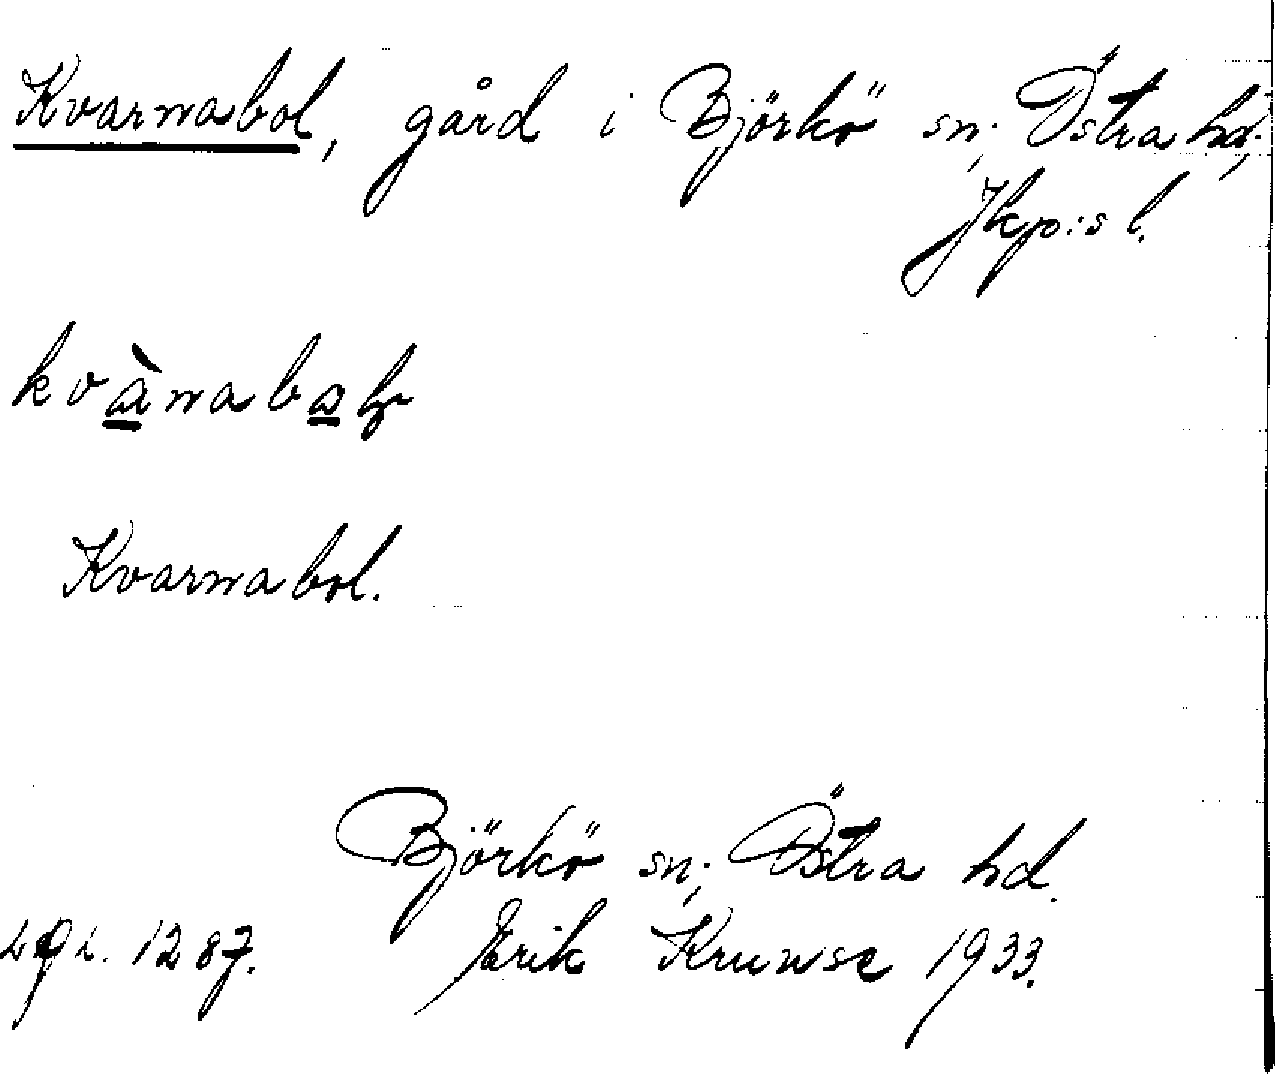 Kvarnabol, gård i Björkö sn, Östra hd,
Jkp:s l.
kvànabol
Kvarnabol.
Björkö sn, Östra hd.
1287. Erik Kruuse 1933.